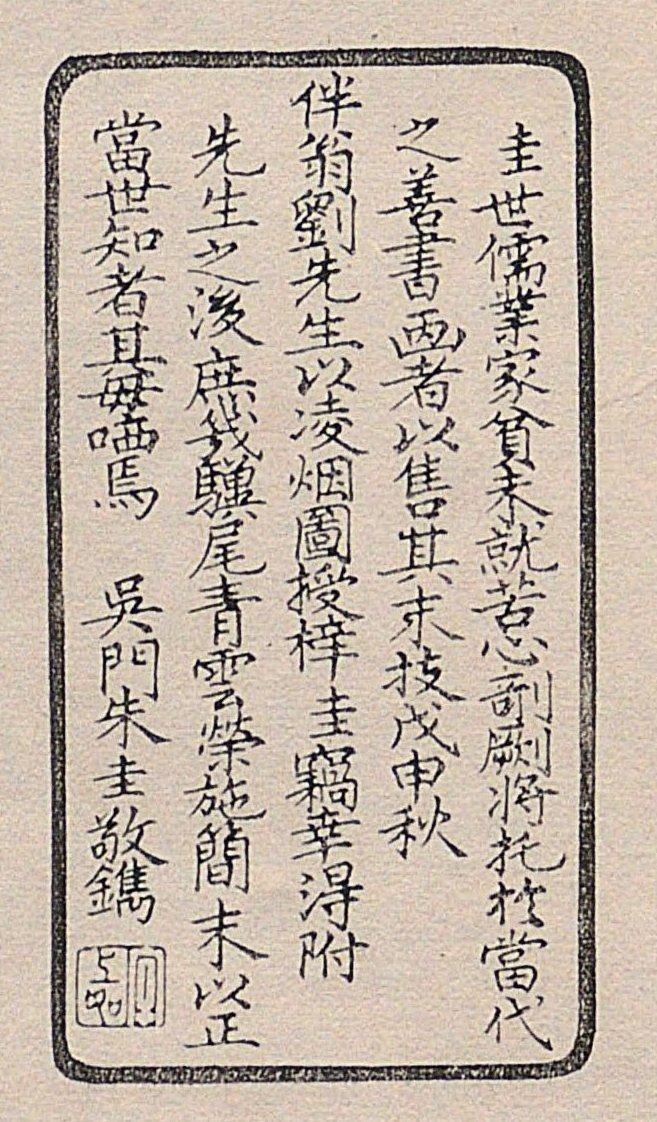 圭世儒業家貧未就苦心剞劂將托於當代
之善書画者以售其末技戊申秋
伴翁劉先生以凌烟圖授梓圭竊幸得附
先生之後庶幾驥尾青雲榮施簡末以正
當世知者其毋哂焉　吳門朱圭敬鐫